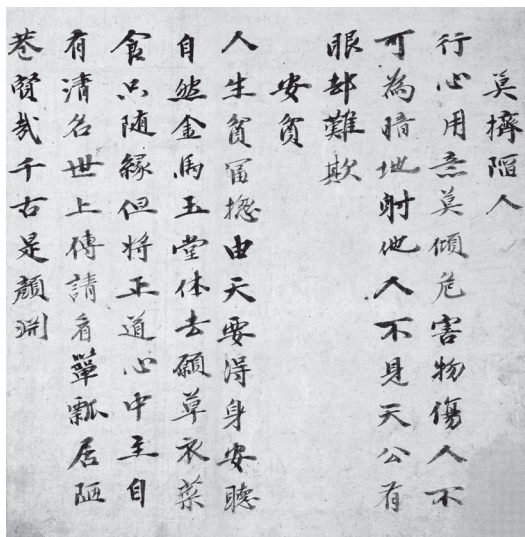 莫擠陥人
行心用意莫傾危害物傷人不
可為暗地射他人不見天公有
眼却難欺
安貧
人生貧富捴由天要得身安聴
自然金馬玉堂休去願草衣菜
食只随緣但将正道心中主自
有清名世上傳請看簞瓢居陋
巷賢哉千古是顔渊